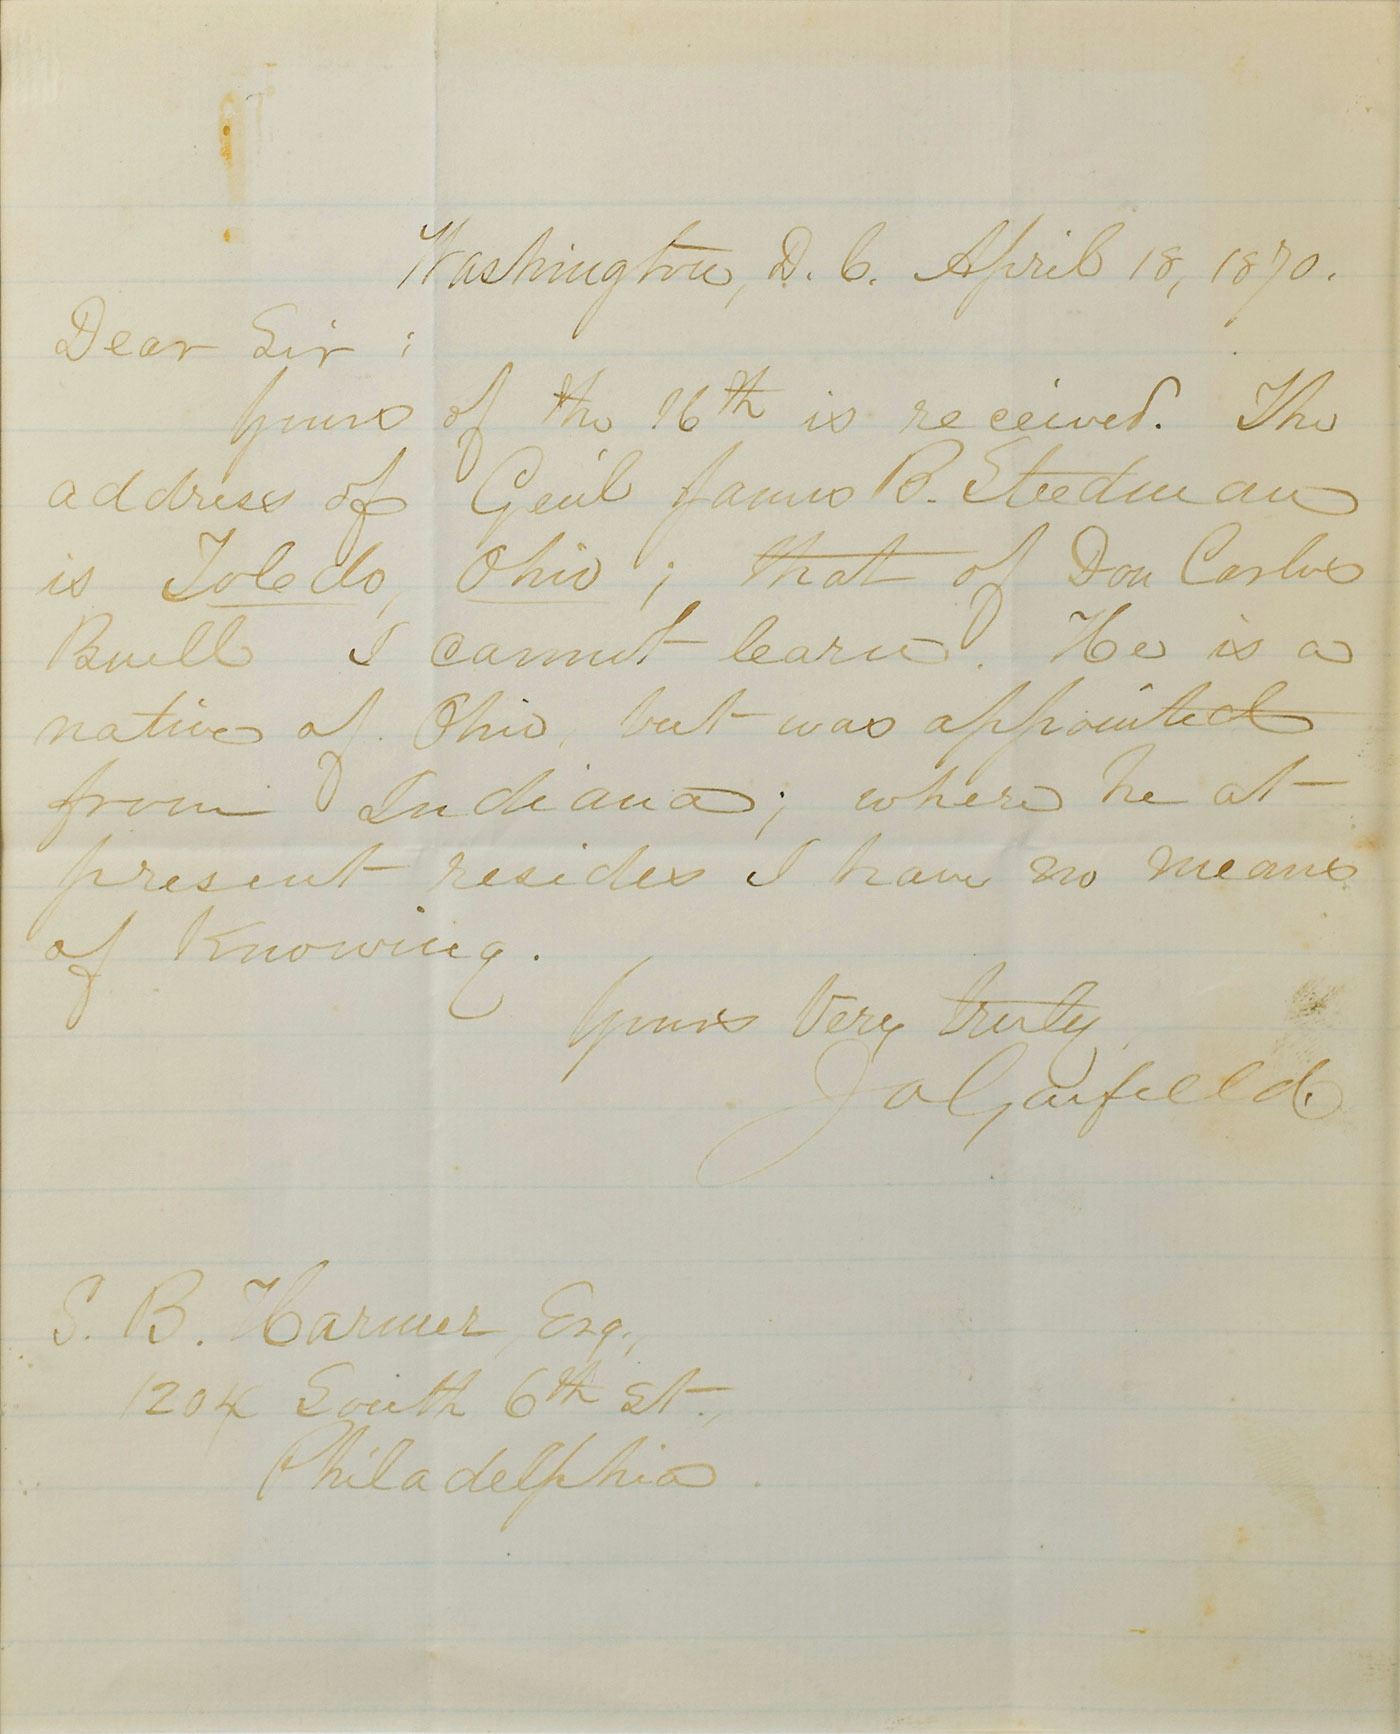 Washington, D. C. April 18, 1870.
Dear Sir:
Yours of the 16th is received. The
address of Genl James B. Steedman
is Toledo, Ohio; that of Don Carlos
Buell I cannot learn. He is a
native of Ohio, but was appointed
from Indiana; where he at
present resides I have no means
of Knowing.
Yours Very truly,
JAGarfield.
S. B. Harmer, Esq.,
1204 South 6th St.,
Philadelphia.